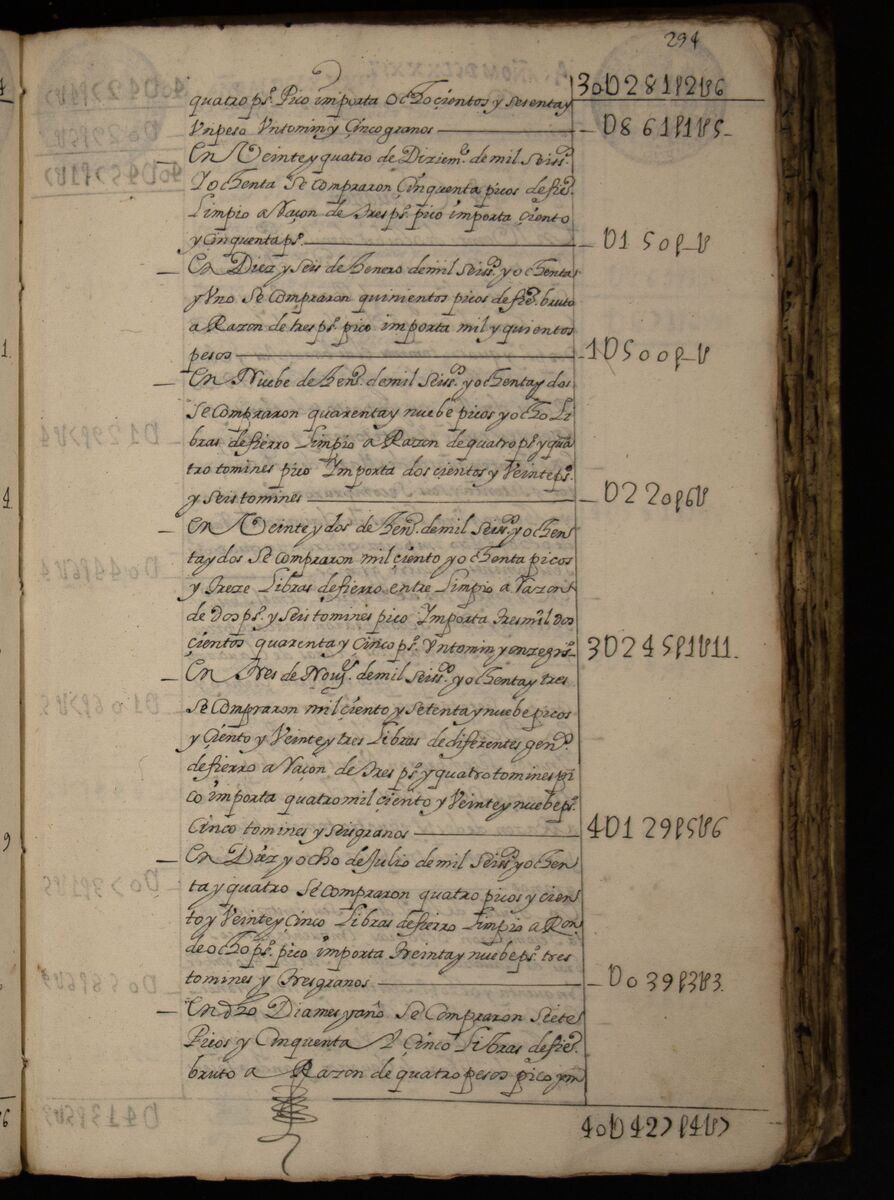 294
30D281p2t6
quatro ps. Pico importa ochocientos y sesentay
Vn peso Vntomin y Cinco granos D861p1t5
En Veinte y quatro de Diziem.e de mil seiss.
Y ochenta Se compraron Cinquenta picos de fie.o
Limpio a Raçon de tres ps. pico importa çiento
y cinquenta ps. D150p_t
En Diez y seis de henero demil seiss. y ochenta
y Vno Se compraron quinientos picos de fie.o bruto
a Razon de tres ps. pico importa mil y quientos
pesos 1D500p_t
En Nuebe de hen.o demil seiss. y ochenta y dos
Se compraron quarenta y nuebe picos y ocho Li
bras de fierro Limpio a Razon de quatro ps. y qua
tro tomines pico Ymporta doscientos y Veinte ps.
y seis tomines D220p6t
En Veinte y dos de hen.o demil seiss. y ochen
ta y dos Se compraron mil çiento y ochenta picos
y treze Libras de fierro entre Limpio a Razon
de Dos ps. y seis tomines pico Ymporta tres mil dos
çientos quarenta y Çinco ps. Vntomin y onze grs. 3D245p1t11
En tres de Nou.e demil seiss. y ochenta y tres
Se compraron mil çiento y setenta y nuebe picos
y Çiento y Veinte y tres Libras de diferentes gen.os
de fierro a Raçon de tres ps. y quatro tomines pi
co importa quatro mil çiento y Veinte y nuebe ps.
Cinco tomines y seis granos 4D129p5t6
En Diez y ocho de Julio de mil seiss. y ochen
ta y quatro Se compraron quatro picos y cien
to y Veinte y cinco Libras de fierro Limpio a Ron
de ocho ps. pico importa treinta y nuebe ps. tres
tomines y tres granos Do39p3t3
En dho Dia mes y año Se compraron siete
Picos y Cinquenta Y Cinco Libras de fie.o
bruto a Razon de quatro pesos pico ym
40D427p4t7